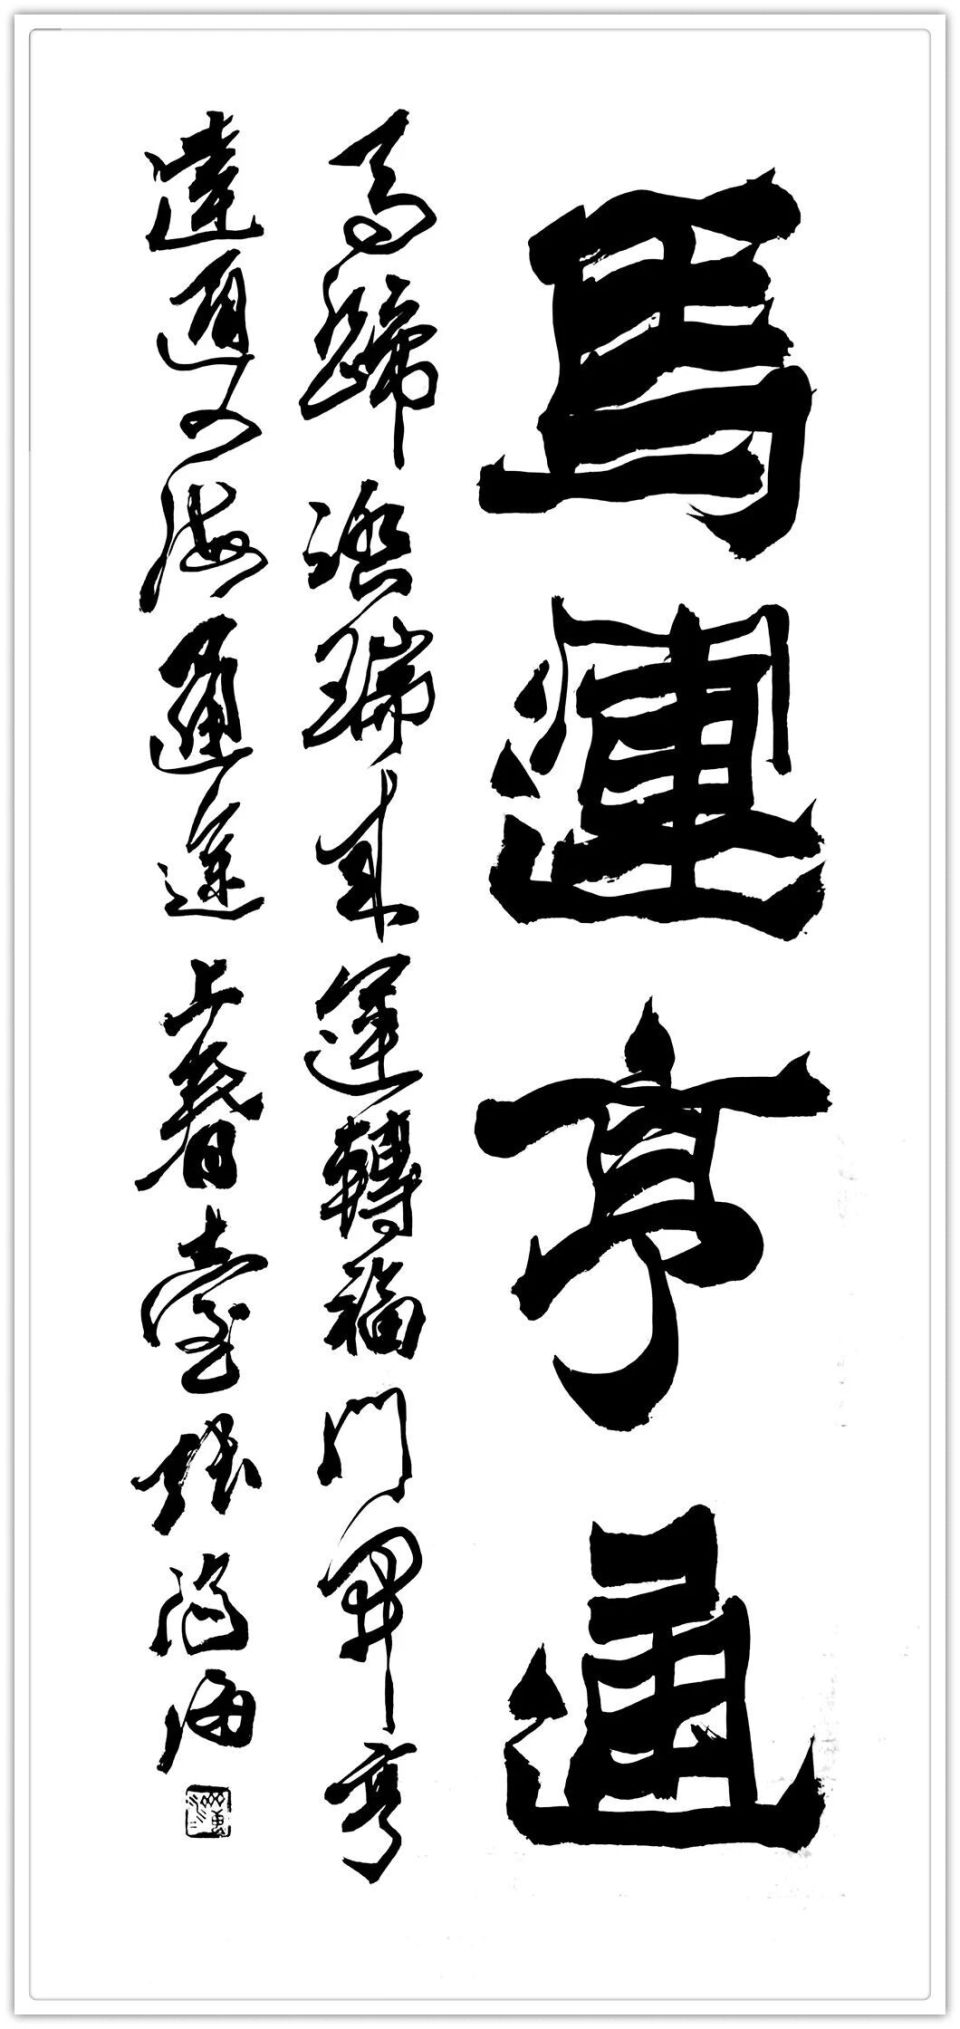 馬運亨通
馬蹄踏瑞來運轉福門開亨
達通四海通途上春臺張海